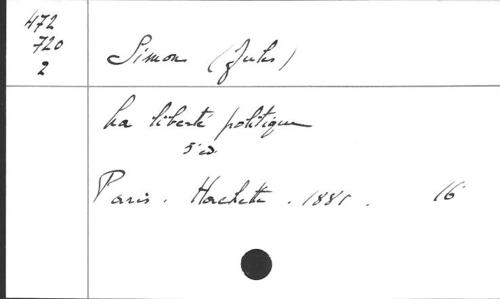 472
720
2
Simon (Jules)
La liberté politique
5e éd.
Paris. Hachette. 1881. 16°